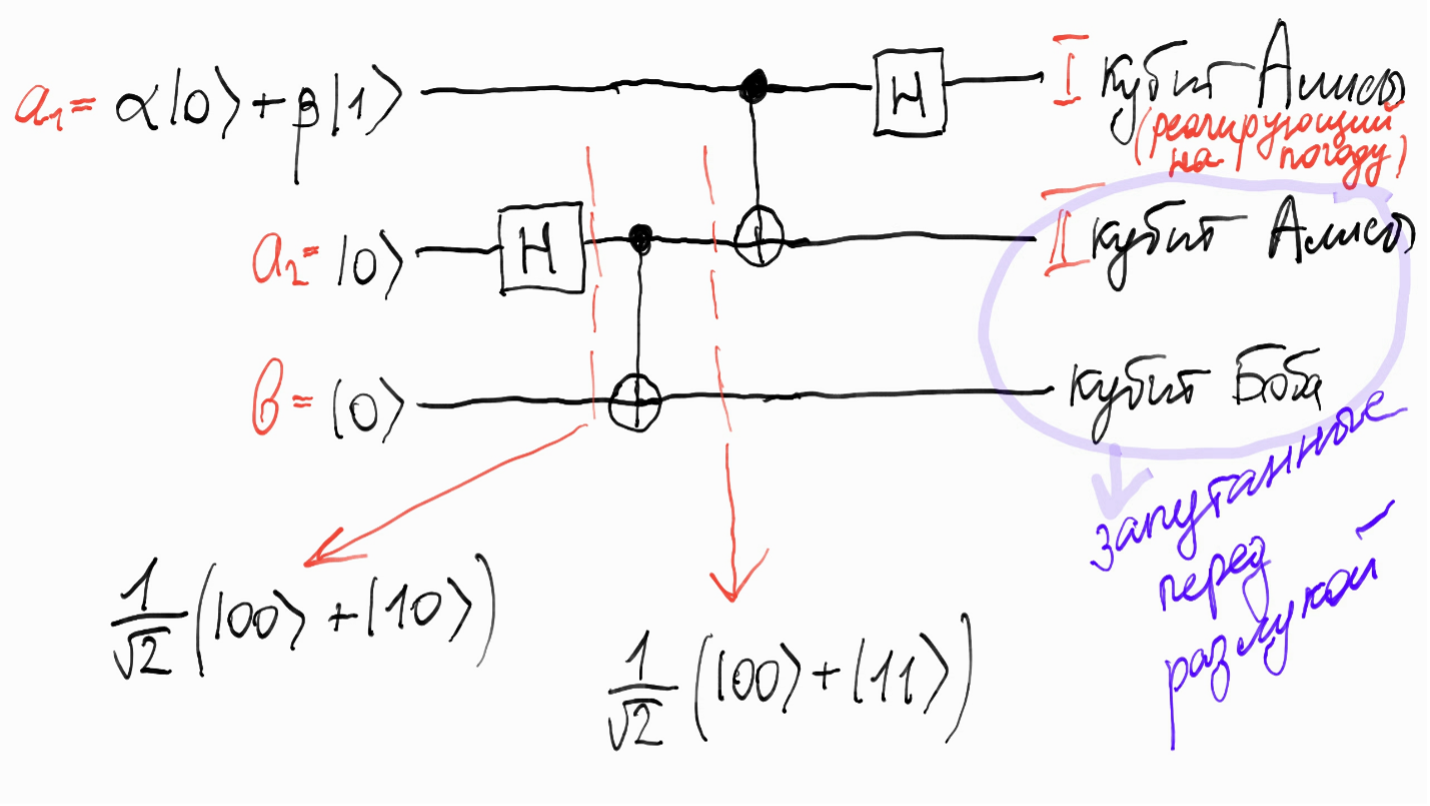 a₁= α|0⟩+β|1⟩
H
I кубит Алисы
(реагирующий
на погоду)
a₂= |0⟩
H
II кубит Алисы
b= |0⟩
кубит Боба
запутанные
перед
разлукой
1/√2 (|00⟩ + |10⟩)
1/√2 (|00⟩ + |11⟩)